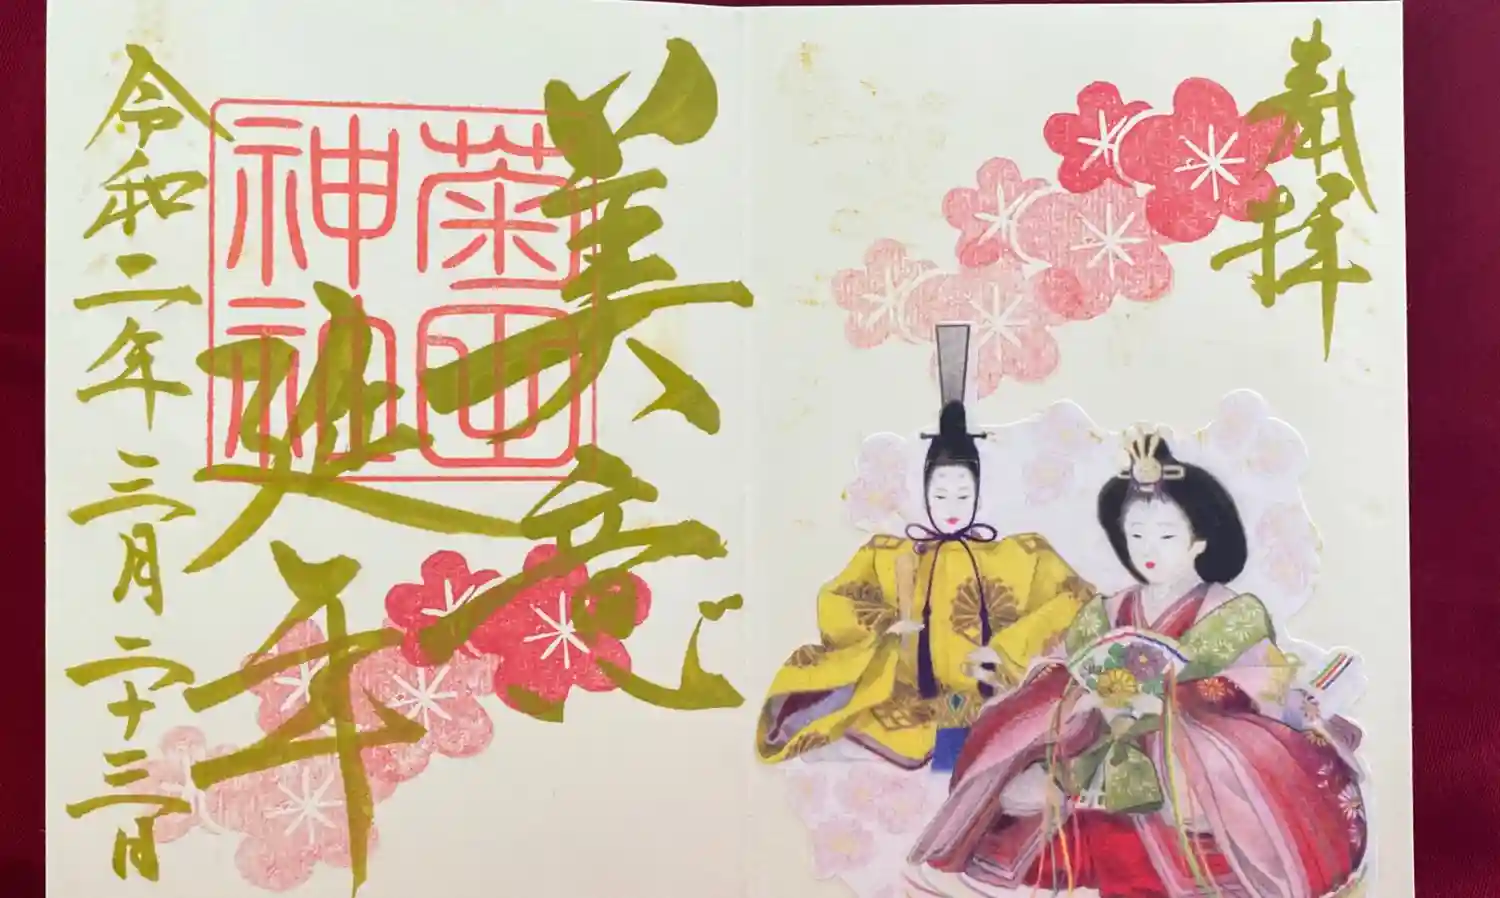 奉拝
美意
延年
菊田
神社
令和二年三月二十三日